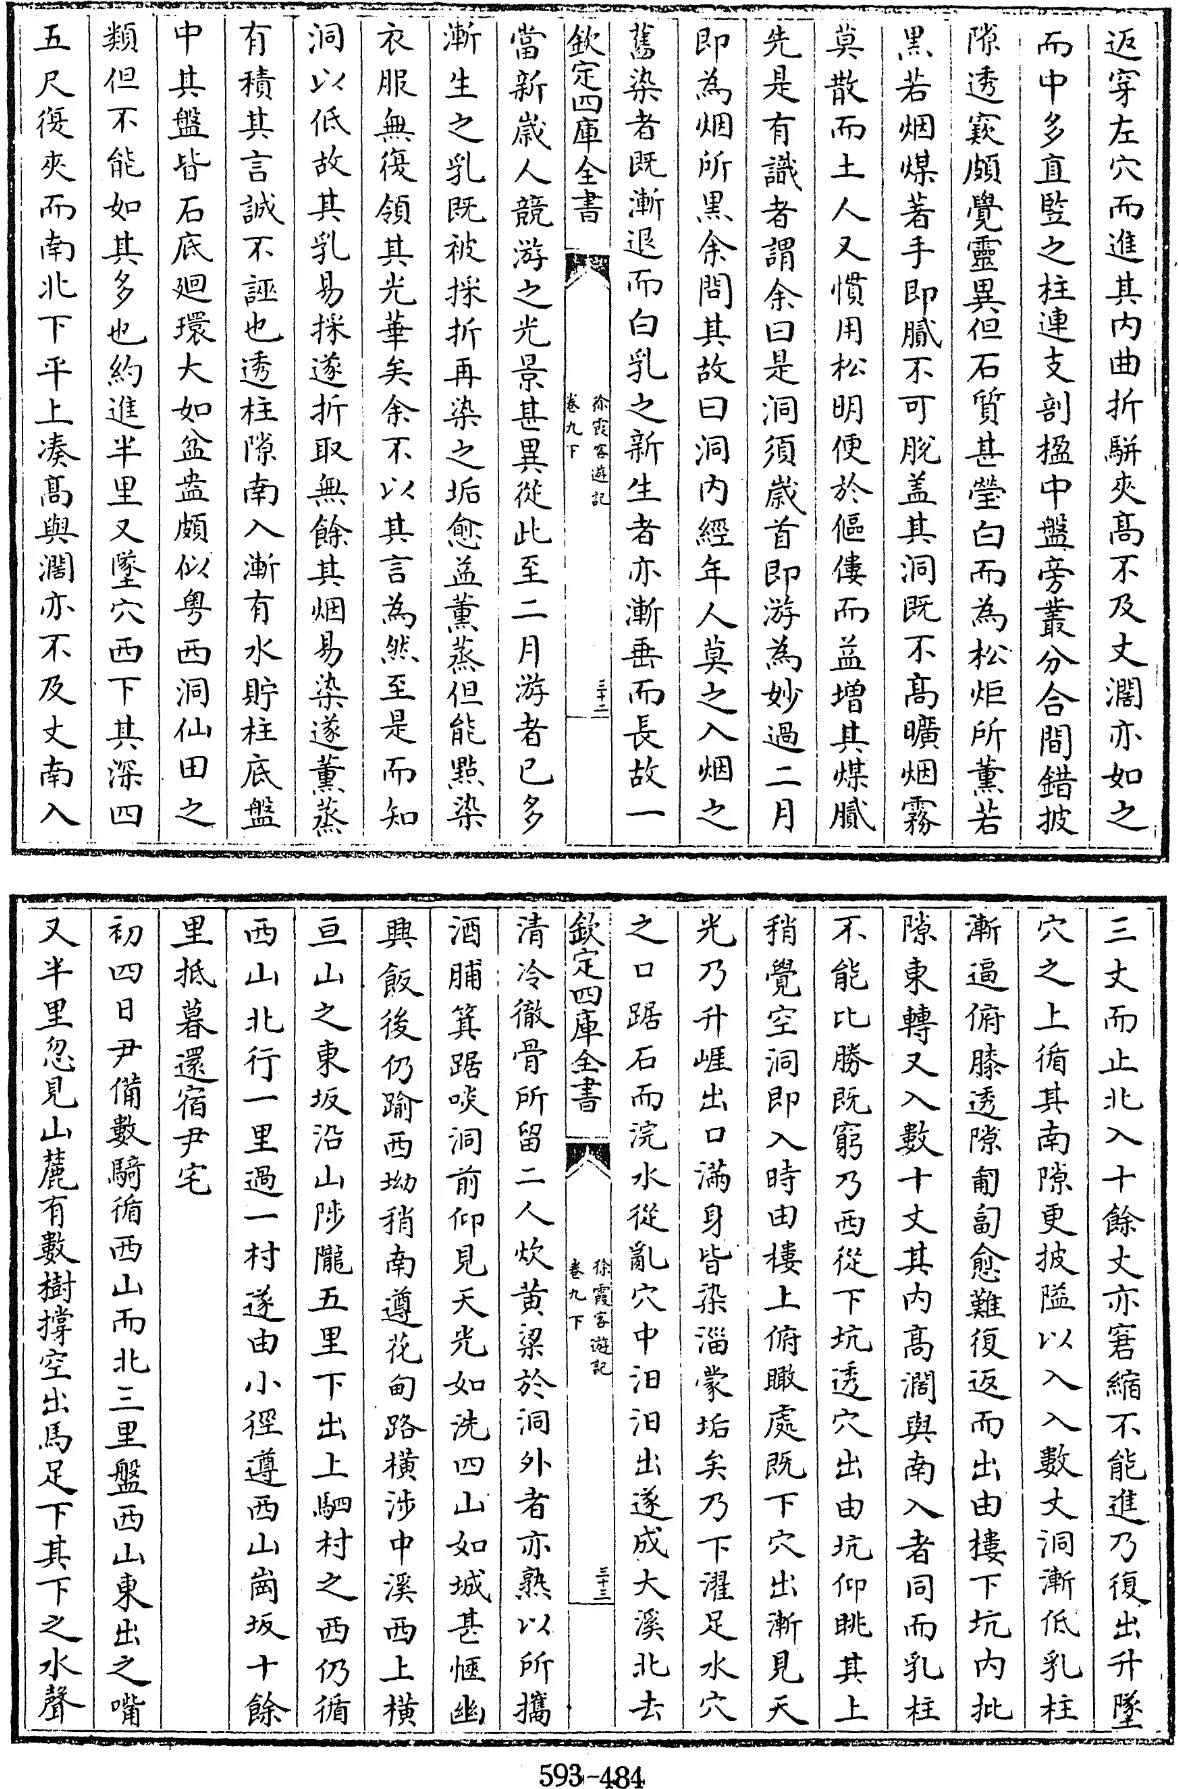 返穿左穴而進其内曲折駢夾髙不及丈濶亦如之
而中多直竪之柱連支剖楹中盤旁叢分合間錯披
隙透竅頗覺靈異但石質甚瑩白而為松炬所薰若
黒若烟煤著手即膩不可脫盖其洞既不髙曠烟霧
莫散而土人又慣用松明便於傴僂而益增其煤膩
先是有識者謂余曰是洞須嵗首即游為妙過二月
即為烟所黒余問其故曰洞内經年人莫之入烟之
舊染者既漸退而白乳之新生者亦漸垂而長故一
欽定四庫全書
徐霞客遊記
卷九下
三十二
當新嵗人競游之光景甚異從此至二月游者已多
漸生之乳既被採折再染之垢愈益薰蒸但能㸃染
衣服無復領其光華矣余不以其言為然至是而知
洞以低故其乳易採遂折取無餘其烟易染遂薰蒸
有積其言誠不誣也透柱隙南入漸有水貯柱底盤
中其盤皆石底廻環大如盆盎頗似粤西洞仙田之
類但不能如其多也約進半里又墜穴西下其深四
五尺復夾而南北下平上凑髙與濶亦不及丈南入
三丈而止北入十餘丈亦窘縮不能進乃復出升墜
穴之上循其南隙更披隘以入入數丈洞漸低乳柱
漸逼俯膝透隙匍匐愈難復返而出由樓下坑内批
隙東轉又入數十丈其内髙濶與南入者同而乳柱
不能比勝既窮乃西從下坑透穴出由坑仰眺其上
稍覺空洞即入時由樓上俯瞰處既下穴出漸見天
光乃升崕出口滿身皆染淄蒙垢矣乃下濯足水穴
之口踞石而浣水從亂穴中汨汨出遂成大溪北去
欽定四庫全書
徐霞客遊記
卷九下
三十三
清冷徹骨所留二人炊黄粱於洞外者亦熟以所攜
酒脯箕踞啖洞前仰見天光如洗四山如城甚愜幽
興飯後仍踰西坳稍南遵花甸路橫涉中溪西上橫
亘山之東坂沿山陟隴五里下出上駟村之西仍循
西山北行一里過一村遂由小徑遵西山崗坂十餘
里抵暮還宿尹宅
初四日尹備數騎循西山而北三里盤西山東出之嘴
又半里忽見山麓有數樹撐空出馬足下其下之水聲
593-484